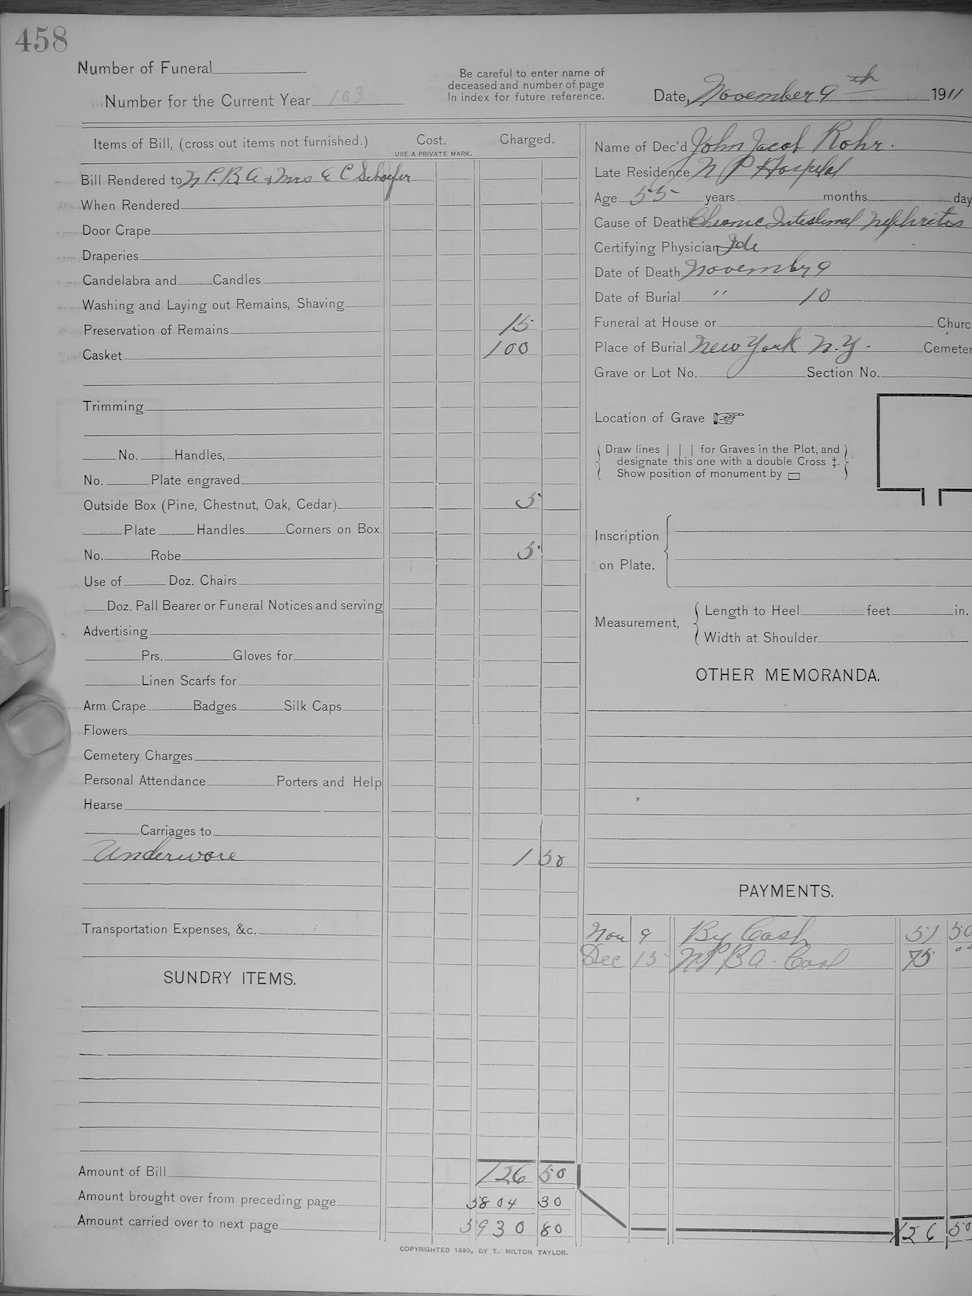 458
Number of Funeral
Number for the Current Year 163
Be careful to enter name of
deceased and number of page
In index for future reference.
Date, November 9th 1911
Items of Bill, (cross out items not furnished.)
Cost.
USE A PRIVATE MARK.
Charged.
Bill Rendered to N. P. B. A & Mrs & C Schaefer
When Rendered
Door Crape
Draperies
Candelabra and Candles
Washing and Laying out Remains, Shaving
Preservation of Remains 15
Casket 100
Trimming
No. Handles,
No. Plate engraved
Outside Box (Pine, Chestnut, Oak, Cedar) 5
Plate Handles Corners on Box.
No. Robe 5
Use of Doz. Chairs
Doz. Pall Bearer or Funeral Notices and serving
Advertising
Prs. Gloves for
Linen Scarfs for
Arm Crape Badges Silk Caps
Flowers
Cemetery Charges
Personal Attendance Porters and Help
Hearse
Carriages to
Underware 1 50
Transportation Expenses, &c.
SUNDRY ITEMS.
Amount of Bill 126 50
Amount brought over from preceding page 5804 30
Amount carried over to next page 5930 80
COPYRIGHTED 1890, BY T. MILTON TAYLOR.
Name of Dec'd John Jacob Rohr.
Late Residence N P Hospital
Age 55 years months day
Cause of Death Chronic Intestinal Nephritis
Certifying Physician
Date of Death November 9
Date of Burial " 10
Funeral at House or Churc
Place of Burial New York N.Y. Cemeter
Grave or Lot No. Section No.
Location of Grave ☞
Draw lines | | | for Graves in the Plot, and
designate this one with a double Cross ‡.
Show position of monument by ▭
Inscription
on Plate.
Measurement,
Length to Heel feet in.
Width at Shoulder
OTHER MEMORANDA.
PAYMENTS.
Nov 9 By Cash 51 50
Dec 15 N.P.B.A. Cash 75 00
126 50